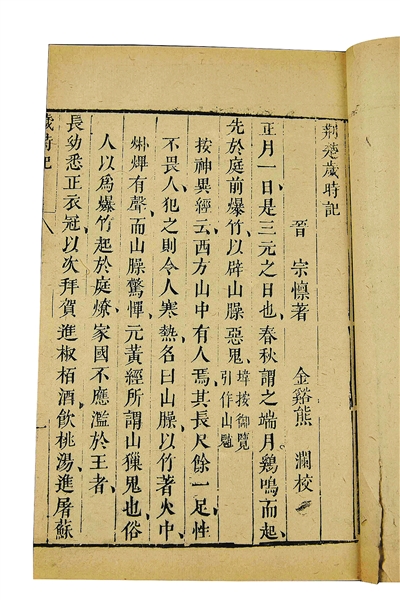 荆楚歲時記
晉 宗懍著 金谿熊 瀾校
正月一日是三元之日也春秋謂之端月鷄鳴而起
先於庭前爆竹以辟山臊惡鬼 璋按御覽引作山魈
按神異經云西方山中有人焉其長尺餘一足性
不畏人犯之則令人寒熱名曰山臊以竹著火中
烞熚有聲而山臊驚憚元黄經所謂山𤢖鬼也俗
人以爲爆竹起於庭燎家國不應濫於王者
長幼悉正衣冠以次拜賀進椒栢酒飲桃湯進屠蘇
歲時記